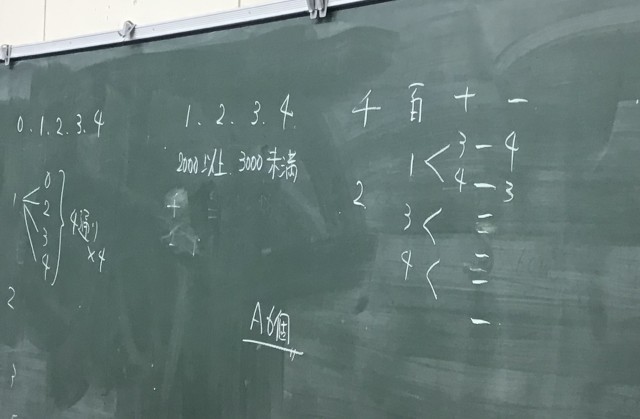 0.1.2.3.4
1 0
2
3
4
4通り
×4
2
3
1.2.3.4
2000以上 3000未満
A 6個
千 百 十 一
2
1 3 - 4
4 - 3
3
4